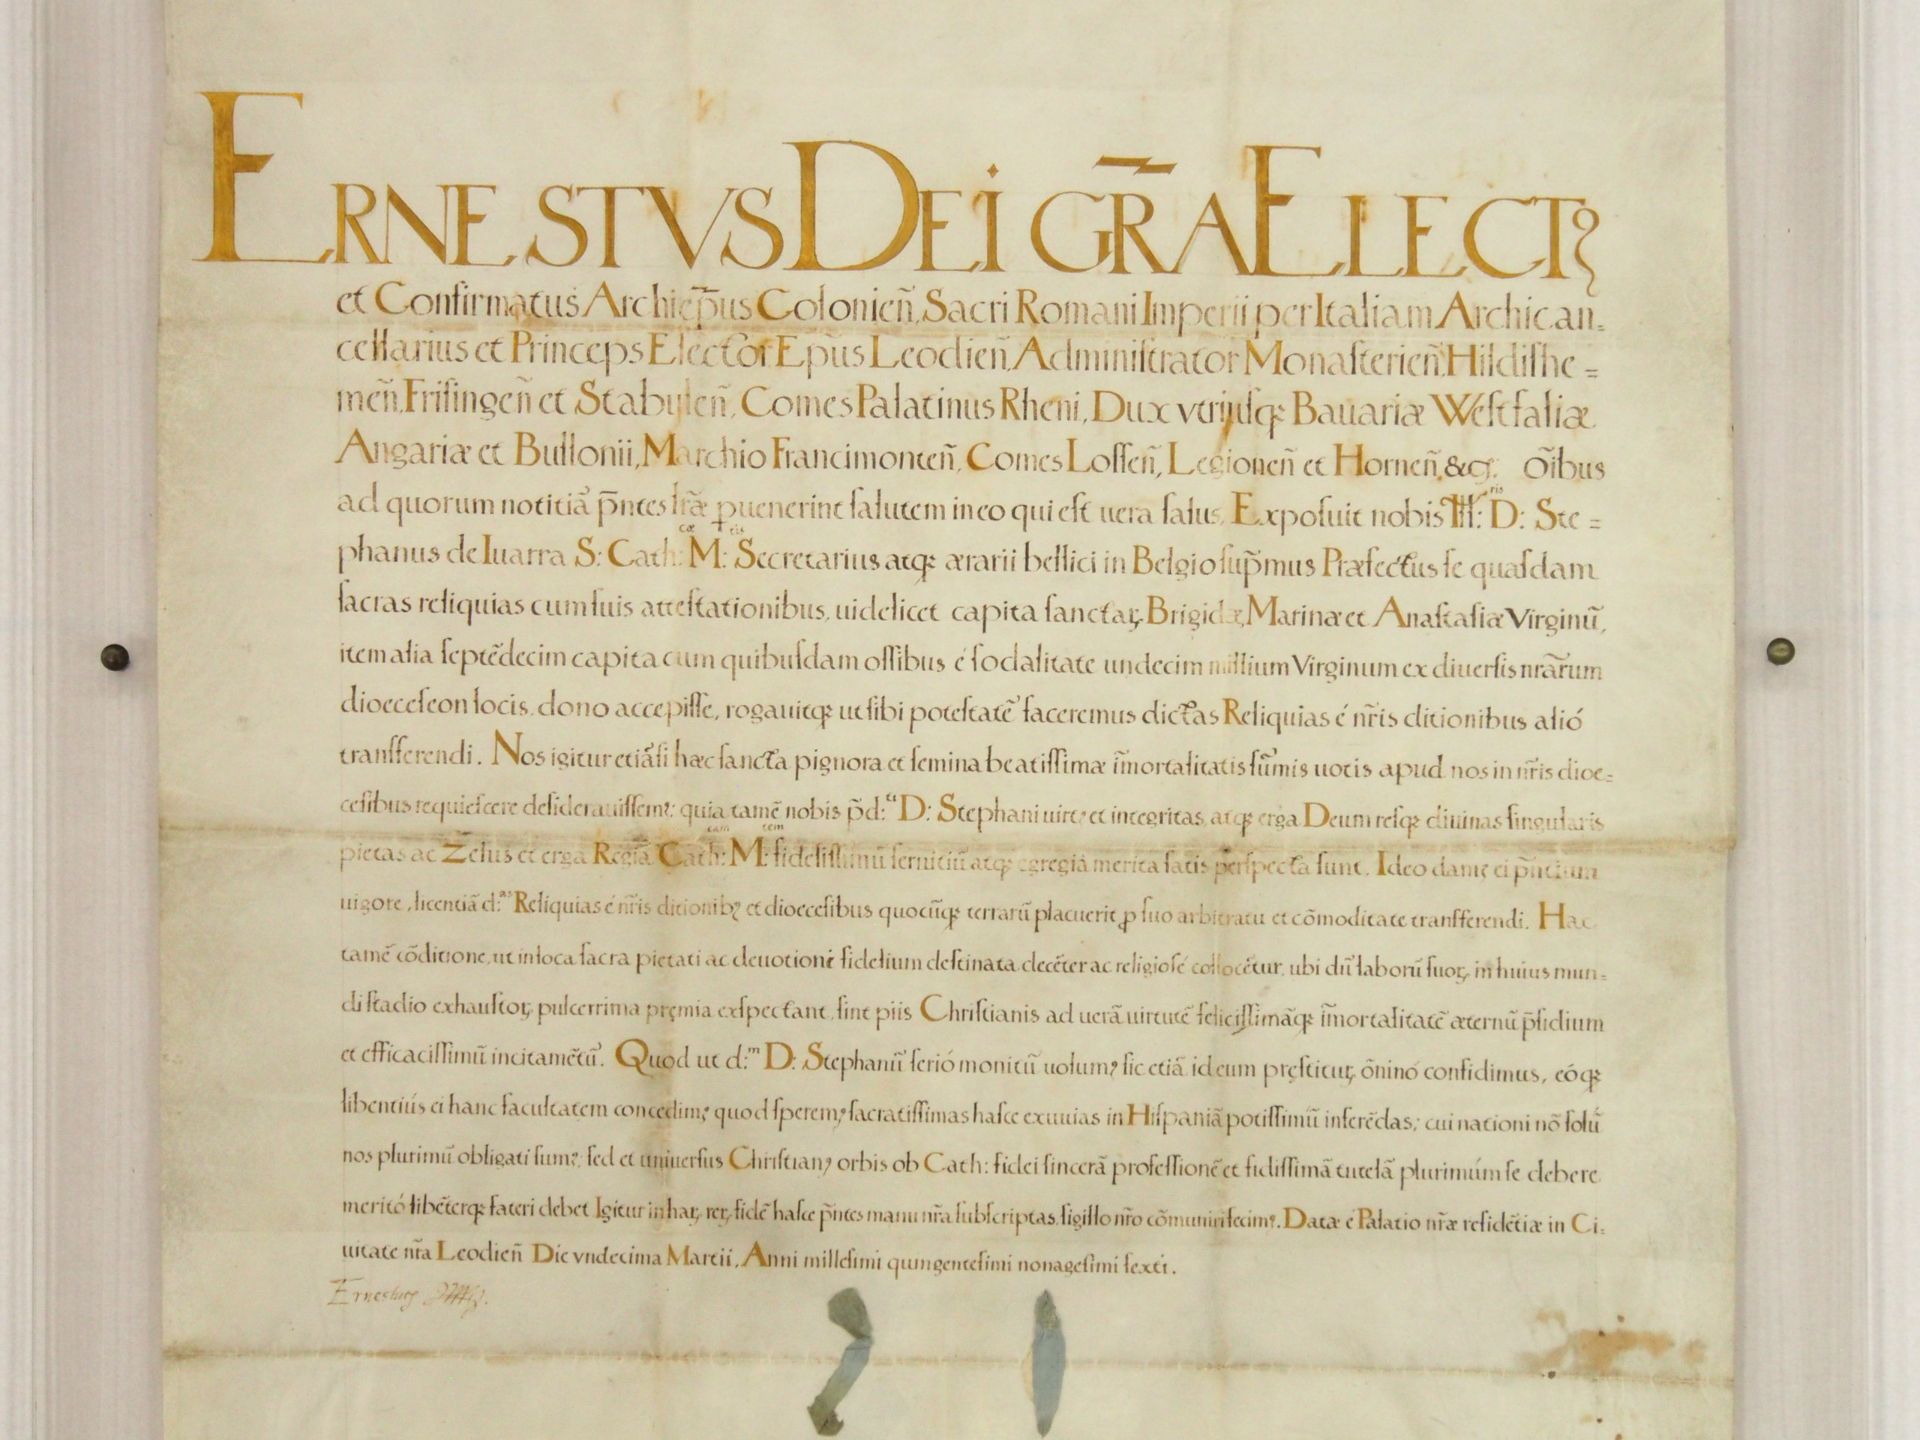 ERNESTVS DEI GR̃A ELECTꝰ
et Confirmatus Archiep̃us Colonien̄, Sacri Romani Imperii per Italiam Archican=
cellarius et Princeps Elector Ep̃us Leodien̄, Administrator Monasterien̄, Hildishe=
men̄, Frisingen̄ et Stabulen̄, Comes Palatinus Rheni, Dux vtriusq; Bauariæ Westfaliæ
Angariæ et Bullonii, Marchio Francimonten̄, Comes Lossen̄, Legionen̄ et Hornen̄, &c. Oĩbus
ad quorum notitiã p̃ntes lr̃æ puenerint salutem in eo qui est uera salus. Exposuit nobis Ill:ris D: Ste=
phanus de Iuarra S: Cath:cæ M:tis Secretarius atq; ærarii bellici in Belgio sup̃mus Præfectus se quasdam
sacras reliquias cum suis attestationibus, uidelicet capita sanctaꝝ Brigidæ, Marinæ et Anastasiæ Virginũ,
item alia septẽdecim capita cum quibusdam ossibus é sodalitate undecim millium Virginum ex diuersis nr̃arum
dioeceseon locis dono accepisse, rogauitq; ut sibi potestatẽ faceremus dictas Reliquias é nr̃is ditionibus alió
transferendi. Nos igitur etiãsi hæc sancta pignora et semina beatissimæ ĩmortalitatis sũmis uotis apud nos in nr̃is dioe=
cesibus requiescere desiderauissemꝰ: quia tamẽ nobis p̃d:ti D: Stephani uirtꝰ et integritas, atq; erga Deum resq; diuinas singularis
pietas ac Zelus et erga Regiã Cath:cam M:tem fidelissimũ seruitiũ atq; egregia merita satis perspecta sunt. Ideo damꝰ ei p̃ntium
uigore, licentiã d:as Reliquias é nr̃is ditionibꝰ et dioecesibus quocũq; terrarũ placuerit p suo arbitratu et cõmoditate transferendi. Hac
tamẽ cõditione, ut in loca sacra pietati ac deuotioni fidelium destinata decẽter ac religiosé collocẽtur, ubi dũ laborũ suoꝝ in huius mun=
di stadio exhaustoꝝ pulcerrima pręmia exspectant, sint piis Christianis ad uerã uirtutẽ felicissimãq; ĩmortalitatẽ æternũ p̃sidium
et efficacissimũ incitamẽtũ. Quod ut d:m D: Stephanũ serió monitũ uolumꝰ, sic etiã id eum pręstiturꝝ õninó confidimus, eóq;
libentiús ei hanc facultatem concedimꝰ quod speremꝰ sacratissimas hasce exuuias in Hispaniã potissimũ inferẽdas; cui nationi nõ solũ
nos plurimũ obligati sumꝰ, sed et uniuersus Christianꝰ orbis ob Cath: fidei sincerã professionẽ et fidissimã tutelã plurimúm se debere
meritó libẽterq; fateri debet. Igitur in haꝝ reꝝ fidẽ hasce p̃ntes manu nr̃a subscriptas, sigillo nr̃o cõmuniri fecimꝰ. Datæ é Palatio nr̃æ residẽtiæ in Ci=
uitate nr̃a Leodien̄ Die vndecima Martii, Anni millesimi quingentesimi nonagesimi sexti.
Ernestus